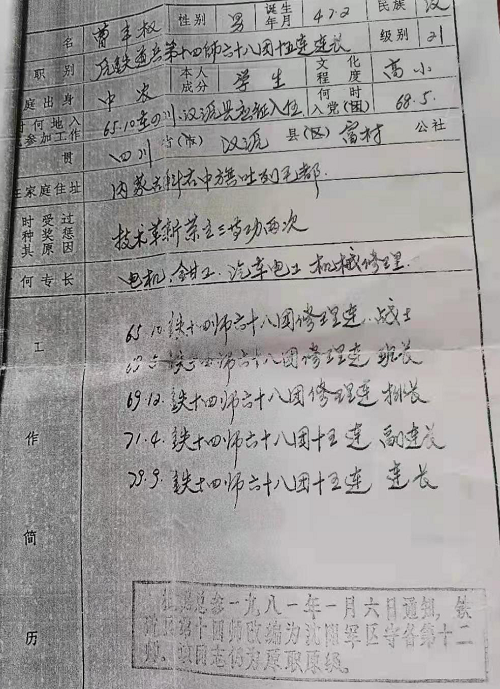 名 曹 权 性别 男 诞生年月 47.2 民族 汉
职别 铁道兵第十四师六十八团十五连连长 级别 21
庭出身 中农 本人成分 学生 文化程度 高小
何地入 参加工作 65.10 四川汉源县应征入伍 何时入党(团) 68.5.
贯 四川 省(市) 汉源 县(区) 富村 公社
在家庭住址 内蒙古科右中旗吐列毛都.
时受过 种奖惩 其原因 技术革新 三等功两次
何专长 电机、钳工、汽车电工 机械修理.
工作简历
65.10. 铁十四师六十八团修理连 战士
铁十四师六十八团修理连 班长
69.12. 铁十四师六十八团修理连 排长
71.4. 铁十四师六十八团十五连 副连长
79.9. 铁十四师六十八团十五连 连长
总参一九八一年一月六日通知，铁
第十四师改编为沈阳军区守备第十二
师。该同志仍为原职原级。